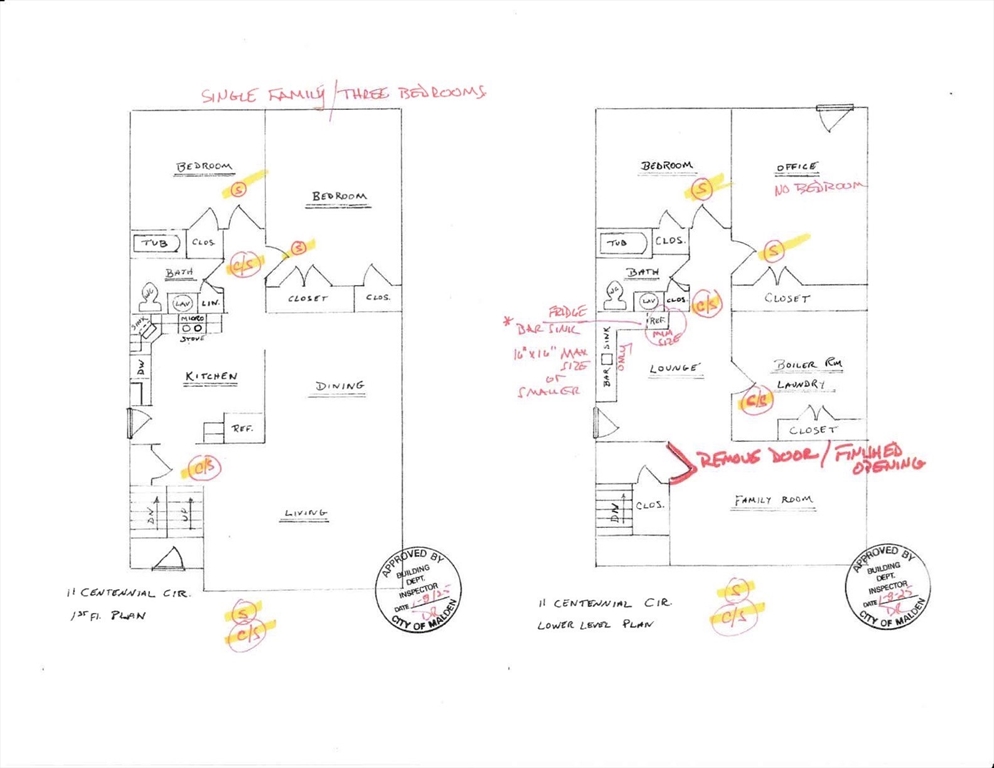 SINGLE FAMILY / THREE BEDROOMS
BEDROOM
S
BEDROOM
S
TUB
CLOS.
C/S
BATH
WC
LAV
LIN.
CLOSET
CLOS.
SINK
MICRO
STOVE
DW
KITCHEN
DINING
REF.
C/S
DN
UP
LIVING
11 CENTENNIAL CIR.
1ST FL. PLAN
S
C/S
APPROVED BY
BUILDING
DEPT.
INSPECTOR
DATE 1-8-25
DR
CITY OF MALDEN
BEDROOM
S
OFFICE
NO BEDROOM
S
TUB
CLOS.
BATH
WC
LAV
CLOS.
C/S
CLOSET
* FRIDGE
BAR SINK
16" X 16" MAX
SIZE
OR
SMALLER
REF.
MINI
SIZE
ONLY
BAR SINK
LOUNGE
BOILER RM
LAUNDRY
C/S
CLOSET
REMOVE DOOR / FINISHED
OPENING
DN
CLOS.
FAMILY ROOM
11 CENTENNIAL CIR
LOWER LEVEL PLAN
S
C/S
APPROVED BY
BUILDING
DEPT.
INSPECTOR
DATE 1-8-25
DR
CITY OF MALDEN